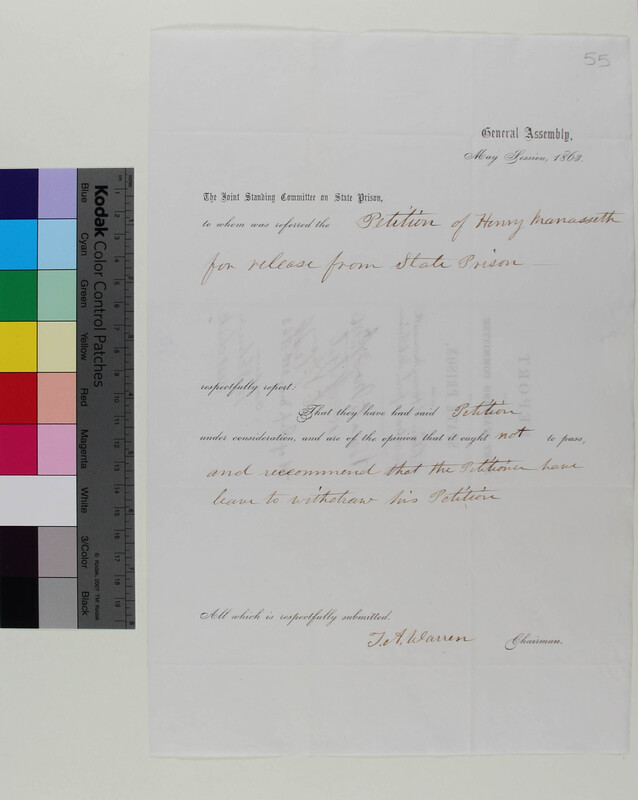 55
General Assembly,
May Session, 1863.
The Joint Standing Committee on State Prison,
to whom was referred the Petition of Henry Manasseth
for release from State Prison
respectfully report:
That they have had said Petition
under consideration, and are of the opinion that it ought not to pass,
and reccommend that the Petitioner have
leave to withdraw his Petition
All which is respectfully submitted.
T. A. Warren Chairman.
Kodak Color Control Patches
Blue
Cyan
Green
Yellow
Red
Magenta
White
3/Color
Black